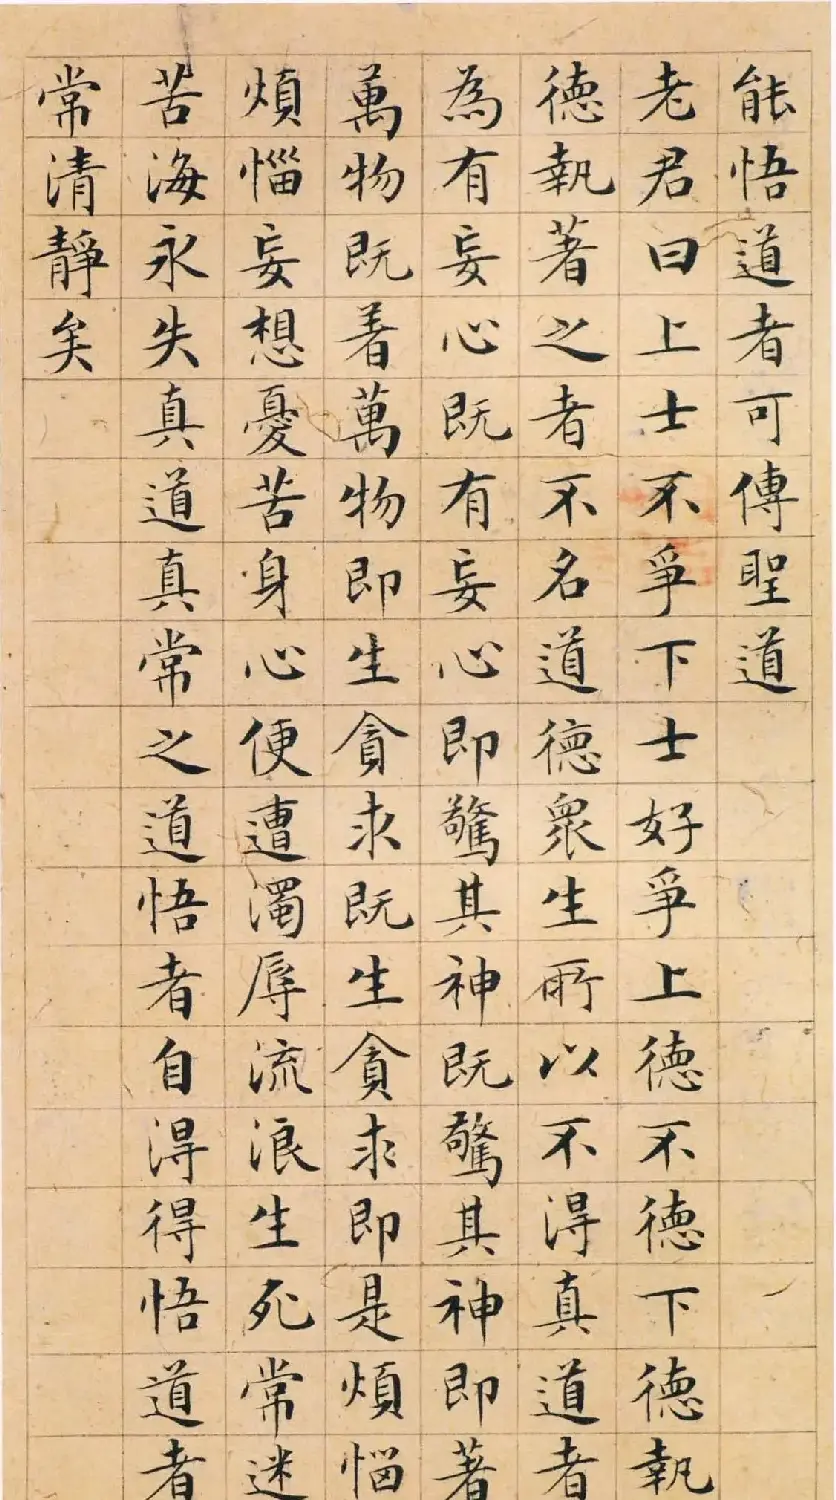 能悟道者可傳聖道
老君曰上士不爭下士好爭上德不德下德執
德執著之者不名道德衆生所以不得真道者
為有妄心既有妄心即驚其神既驚其神即著
萬物既着萬物即生貪求既生貪求即是煩惱
煩惱妄想憂苦身心便遭濁辱流浪生死常迷
苦海永失真道真常之道悟者自淂得悟道者
常清靜矣